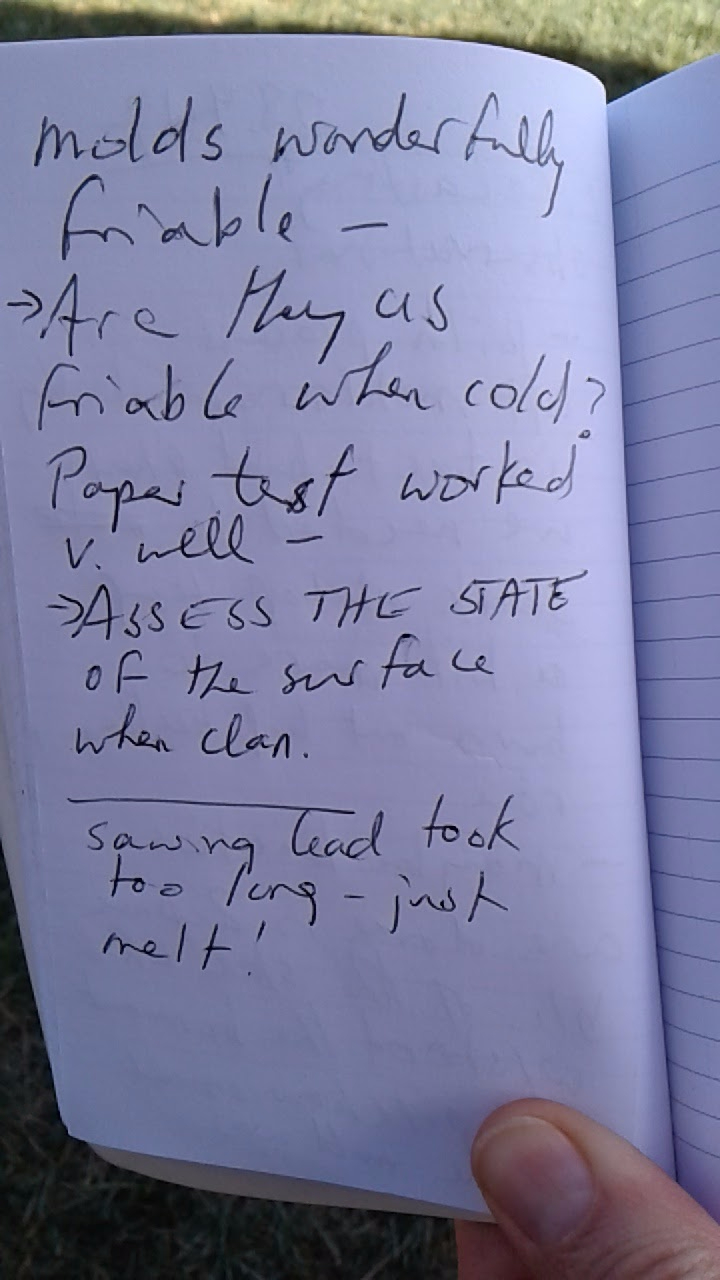 molds wonderfully
friable –
→Are they as
friable when cold?
Paper test worked
v. well –
→ASSESS THE STATE
OF the surface
when clan.
sawing lead took
too long – just
melt!